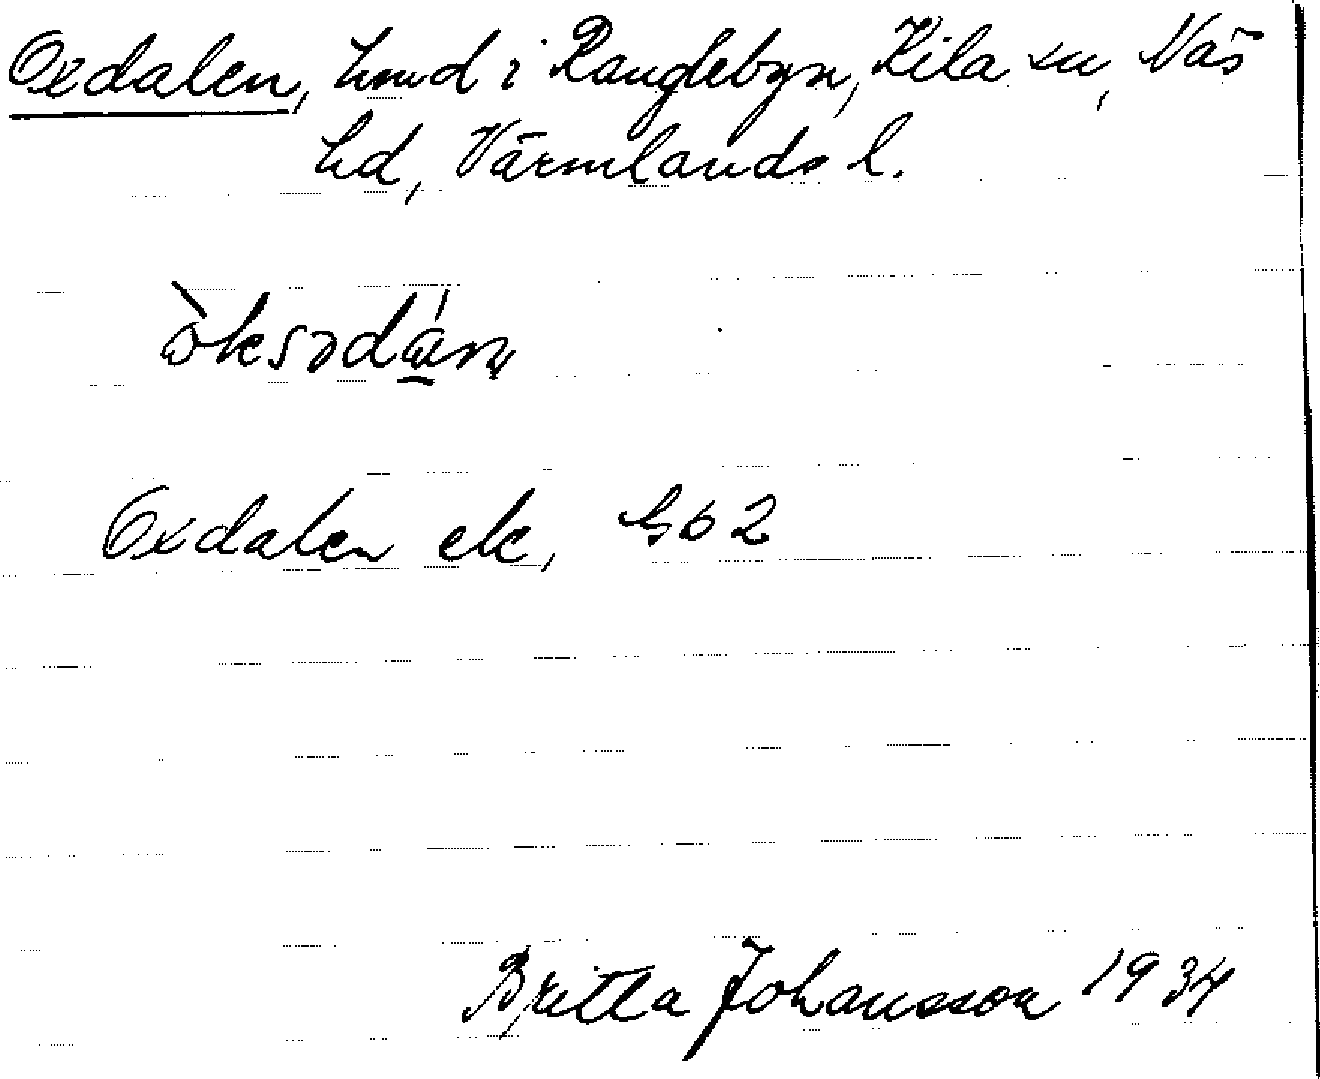 Oxdalen, hmd i Ranglebyn, Kila sn, Näs
hd, Värmlands l.
òksədán
Oxdalen ek, Gb 2
Britta Johansson 1934